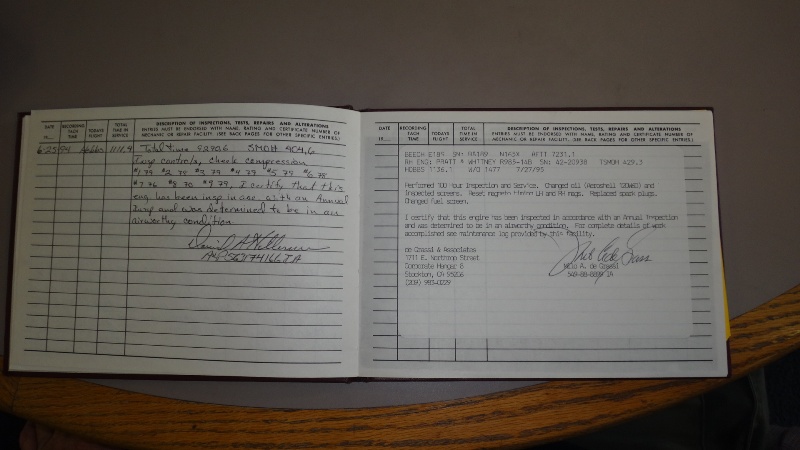 DATE
19
RECORDING
TACH
TIME
TODAYS
FLIGHT
TOTAL
TIME IN
SERVICE
DESCRIPTION OF INSPECTIONS, TESTS, REPAIRS AND ALTERATIONS
ENTRIES MUST BE ENDORSED WITH NAME, RATING AND CERTIFICATE NUMBER OF
MECHANIC OR REPAIR FACILITY. (SEE BACK PAGES FOR OTHER SPECIFIC ENTRIES.)
1111.9 Total Time SMOH 904.6
Insp controls, check compression
#1 79 #2 78 #3 79 #4 77 #5 79 #6 78
#7 76 #8 70 #9 79, I certify that this
eng has been insp in acc with an Annual
Insp and was determined to be in an
airworthy condition
DATE
19
RECORDING
TACH
TIME
TODAYS
FLIGHT
TOTAL
TIME IN
SERVICE
DESCRIPTION OF INSPECTIONS, TESTS, REPAIRS AND ALTERATIONS
ENTRIES MUST BE ENDORSED WITH NAME, RATING AND CERTIFICATE NUMBER OF
MECHANIC OR REPAIR FACILITY. (SEE BACK PAGES FOR OTHER SPECIFIC ENTRIES.)
BEECH E18S SN: AFTT 7231.1
RH ENG: PRATT & WHITNEY R985-14B SN: 42-20938 TSMOH 429.3
HOBBS 1136.1 W/O 1477 7/27/95
Performed 100 Hour Inspection and Service. Changed oil (Aeroshell 120W60) and
Inspected screens. Reset magneto timing LH and RH mags. Replaced spark plugs.
Changed fuel screen.
I certify that this engine has been inspected in accordance with an Annual Inspection
and was determined to be in an airworthy condition. For complete details of work
accomplished see maintenance log provided by this facility.
de Grassi & Associates
1711 E. Northrop Street
Corporate Hangar 8
Stockton, CA 95206
(209) 983-0229
A. de Grassi
IA